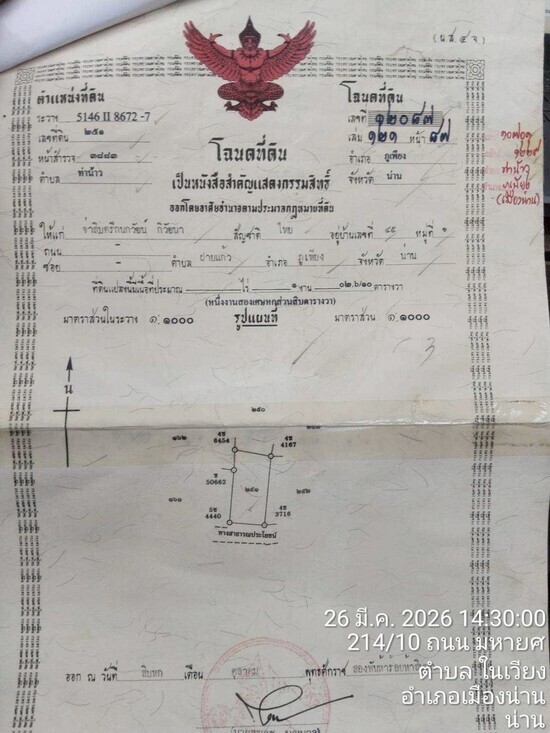 (น.ส. ๔ จ)
ตำแหน่งที่ดิน
ระวาง 5146 II 8672 -7
เลขที่ดิน ๒๕๑
หน้าสำรวจ ๓๘๘๓
ตำบล ท่าน้าว
โฉนดที่ดิน
เลขที่ ๑๒๐๘๗
เล่ม ๑๒๑ หน้า ๘๗
อำเภอ ภูเพียง
จังหวัด น่าน
โฉนดที่ดิน
เป็นหนังสือสำคัญแสดงกรรมสิทธิ์
ออกโดยอาศัยอำนาจตามประมวลกฎหมายที่ดิน
ให้แก่ สัญชาติ ไทย อยู่บ้านเลขที่ ๔๙ หมู่ที่ ๑
ถนน -
ซอย - ตำบล ฝายแก้ว อำเภอ ภูเพียง จังหวัด น่าน
ที่ดินแปลงนี้มีเนื้อที่ประมาณ - ไร่ ๑ งาน ๐๒.๖/๑๐ ตารางวา
(หนึ่งงานสองเศษหกส่วนสิบตารางวา)
มาตราส่วนในระวาง ๑:๑๐๐๐ รูปแผนที่ มาตราส่วน ๑:๑๐๐๐
น
๒๕๐
๑๖๒
4ช 6454
4ช 4167
ช 50662
๑๖๑
๒๕๑
๒๕๒
5ช 4440
4ช 3716
ทางสาธารณประโยชน์
ออก ณ วันที่ สิบหก เดือน ตุลาคม พุทธศักราช
26 มี.ค. 2026 14:30:00
214/10 ถนน มหายศ
ตำบล ในเวียง
อำเภอเมืองน่าน
น่าน